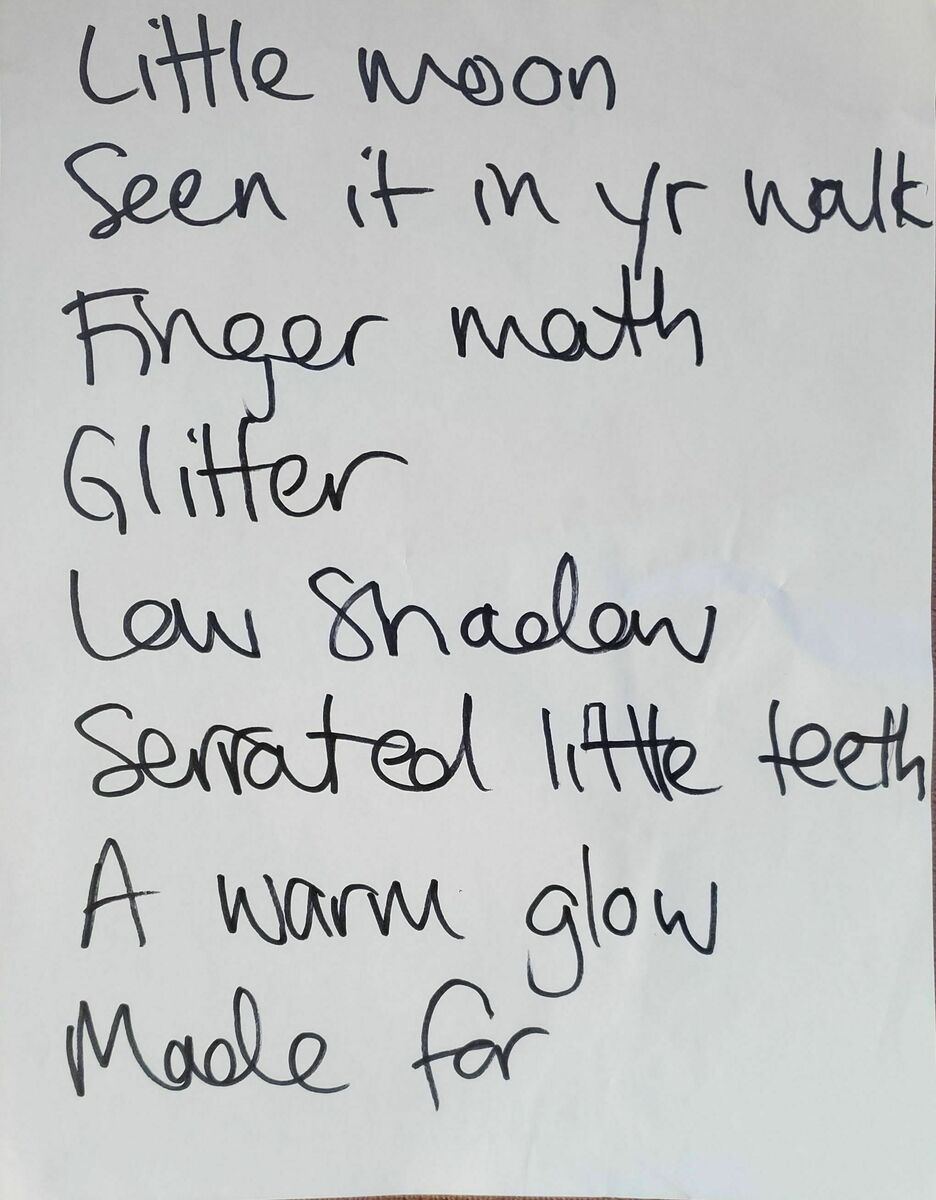 Little moon
Seen it in yr walk
Finger math
Glitter
Low Shadow
Serrated little teeth
A warm glow
Made for